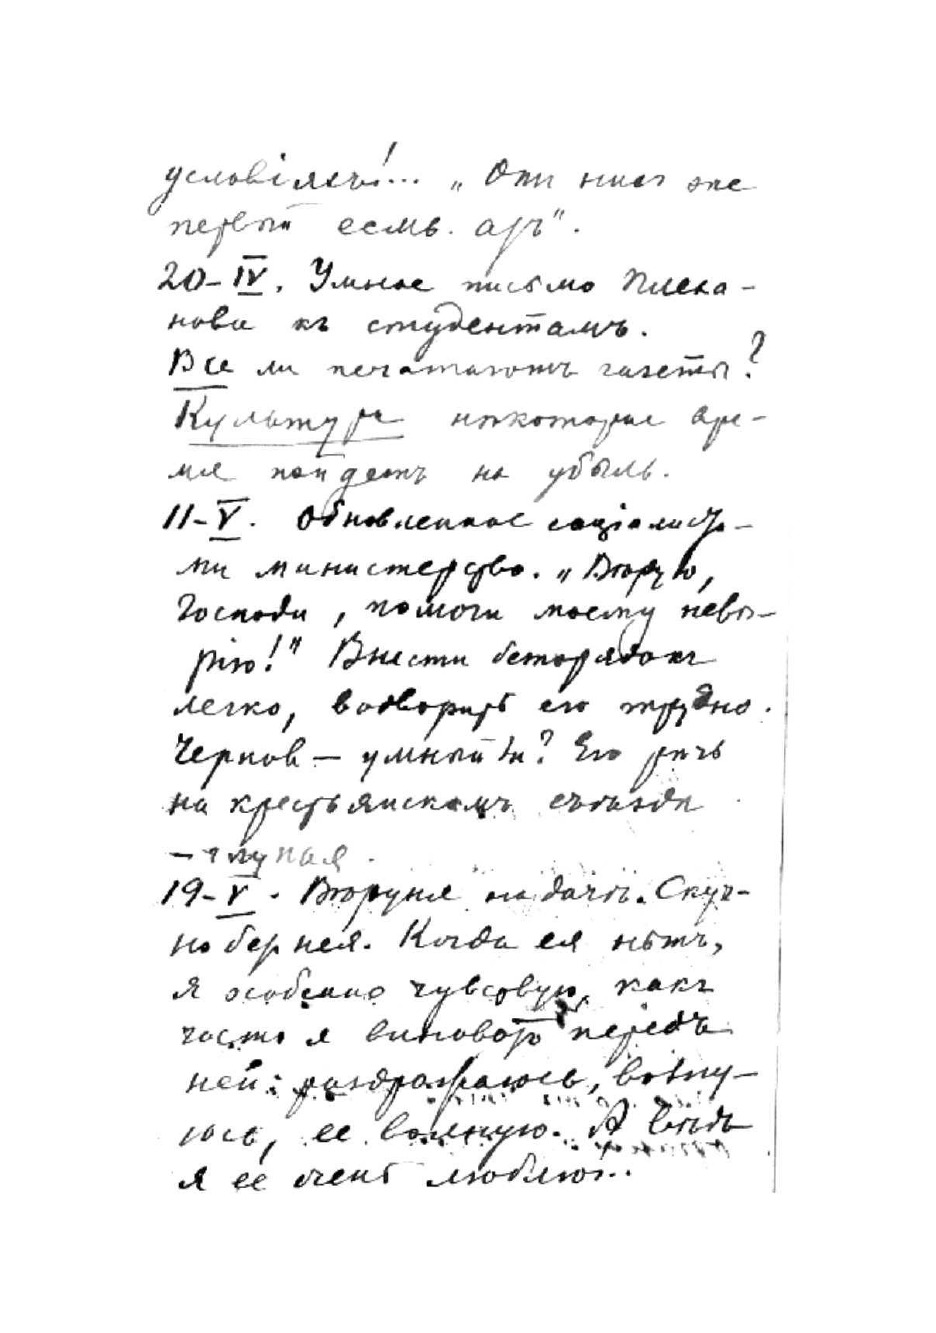 условіяхъ!... „Отъ нихъ же
первый есмь азъ".
20-IV. Умное письмо Плеха-
нова къ студентамъ.
Все ли печатаютъ газеты?
Культура нѣкоторое вре-
мя пойдетъ на убыль.
11-V. Обновленное соціалиста-
ми министерство. „Вѣрую,
Господи, помоги моему невѣ-
рію!" Внести безпорядокъ
легко, водворить его трудно.
Чернов — умный ли? Его рѣчь
на крестьянскомъ съѣздѣ
— глупая.
19-V. Вѣруня на дачѣ. Скуч-
но без нея. Когда ея нѣтъ,
я особенно чувствую, какъ
часто я виноватъ передъ
ней: раздражаюсь, волну-
юсь, ее волную. А вѣдь
я ее очень люблю...